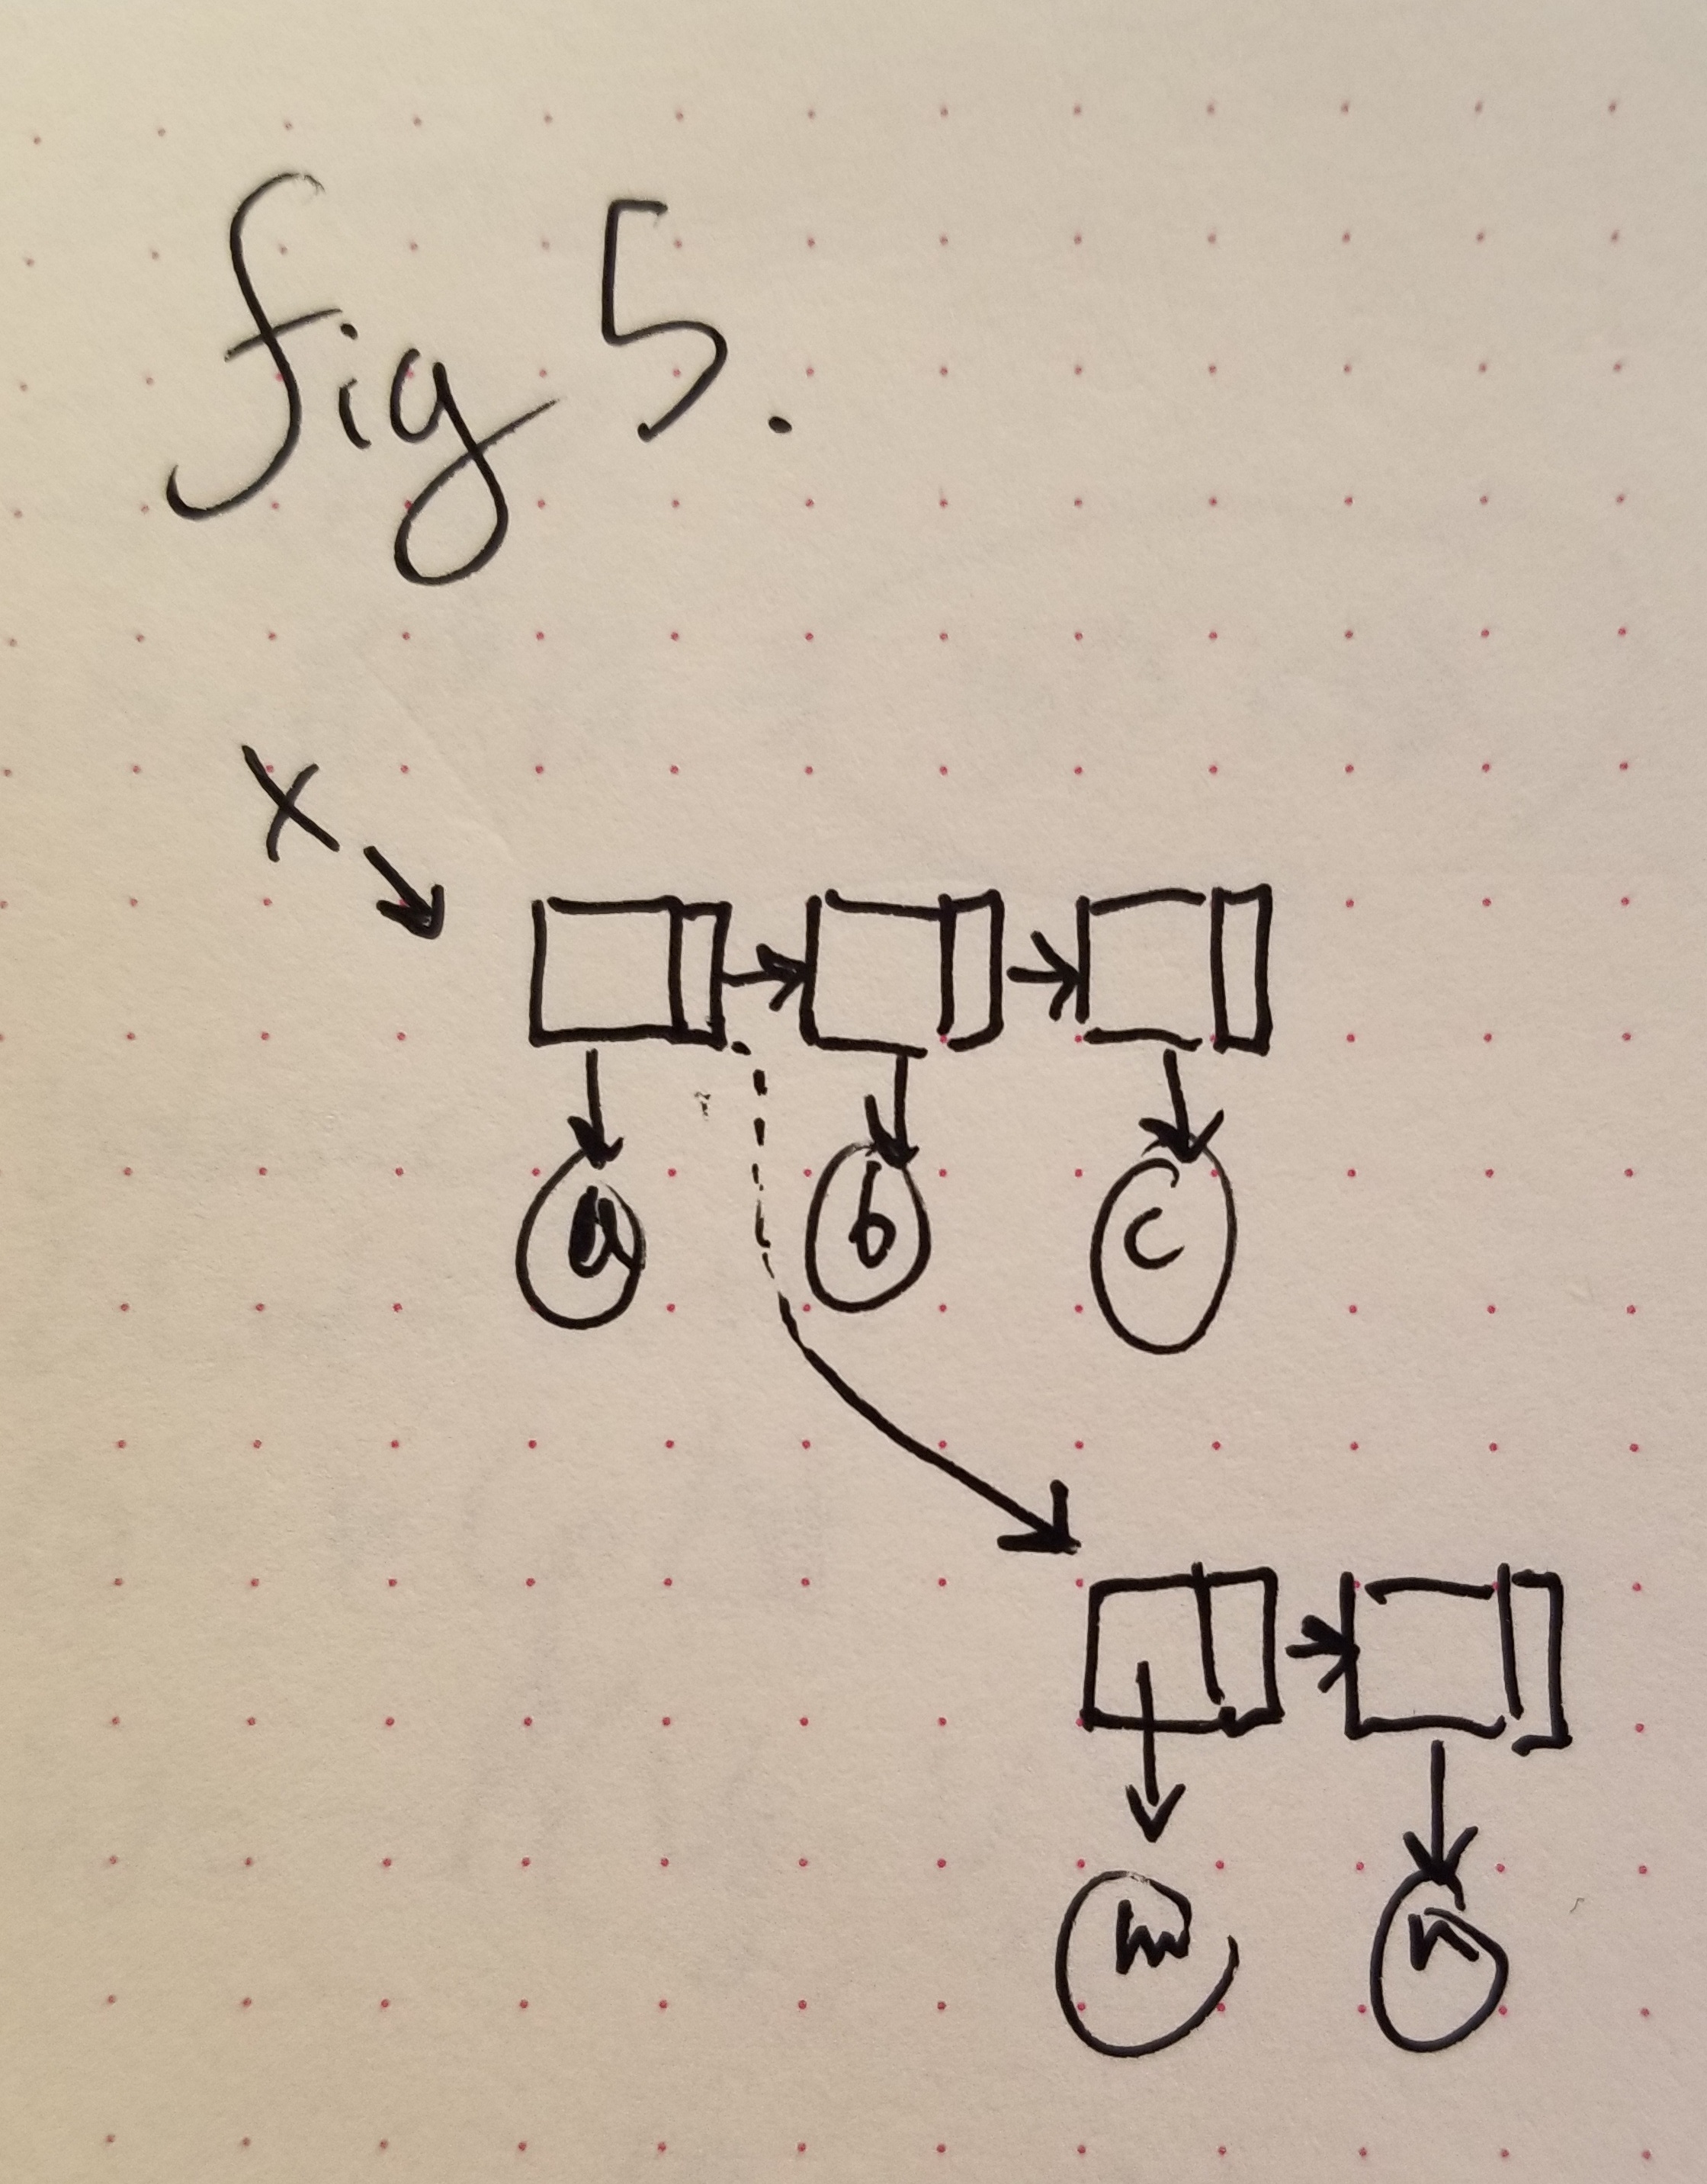 fig 5.
x
a b c
m n